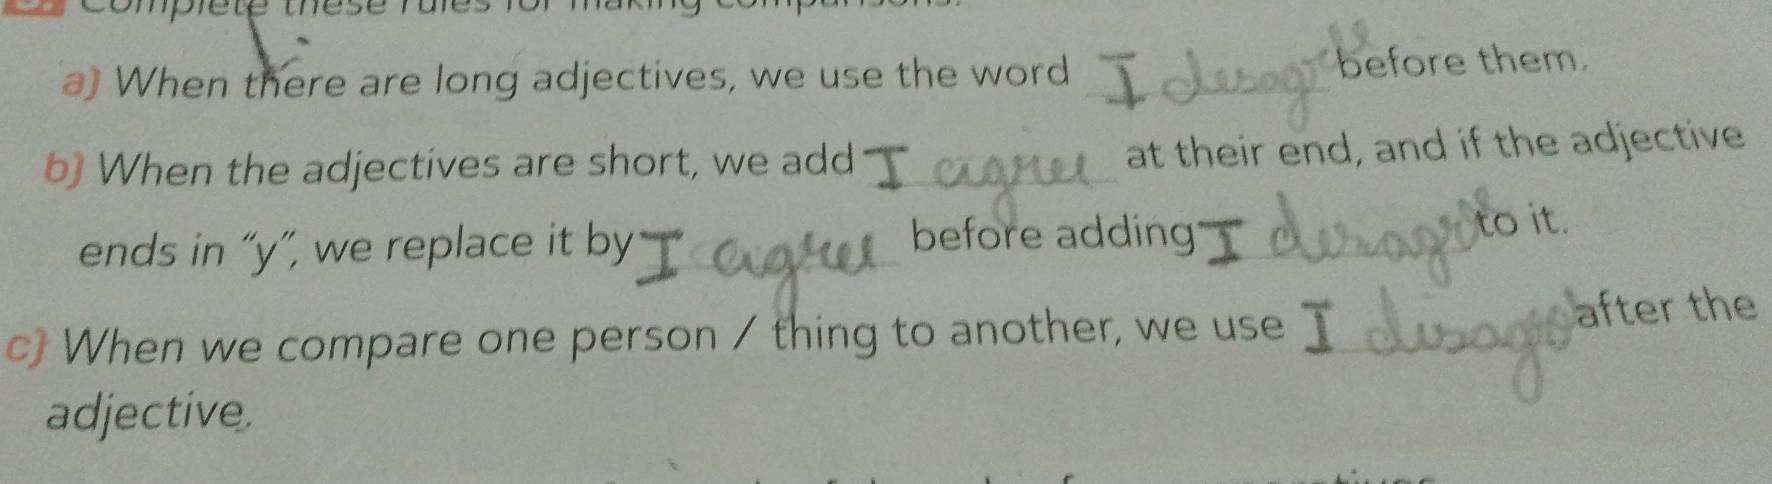 Complete these rules for making comparisons.
a) When there are long adjectives, we use the word I desagree before them.
b) When the adjectives are short, we add I agree at their end, and if the adjective
ends in "y", we replace it by I agree before adding I desagree to it.
c) When we compare one person / thing to another, we use I disagree after the
adjective.